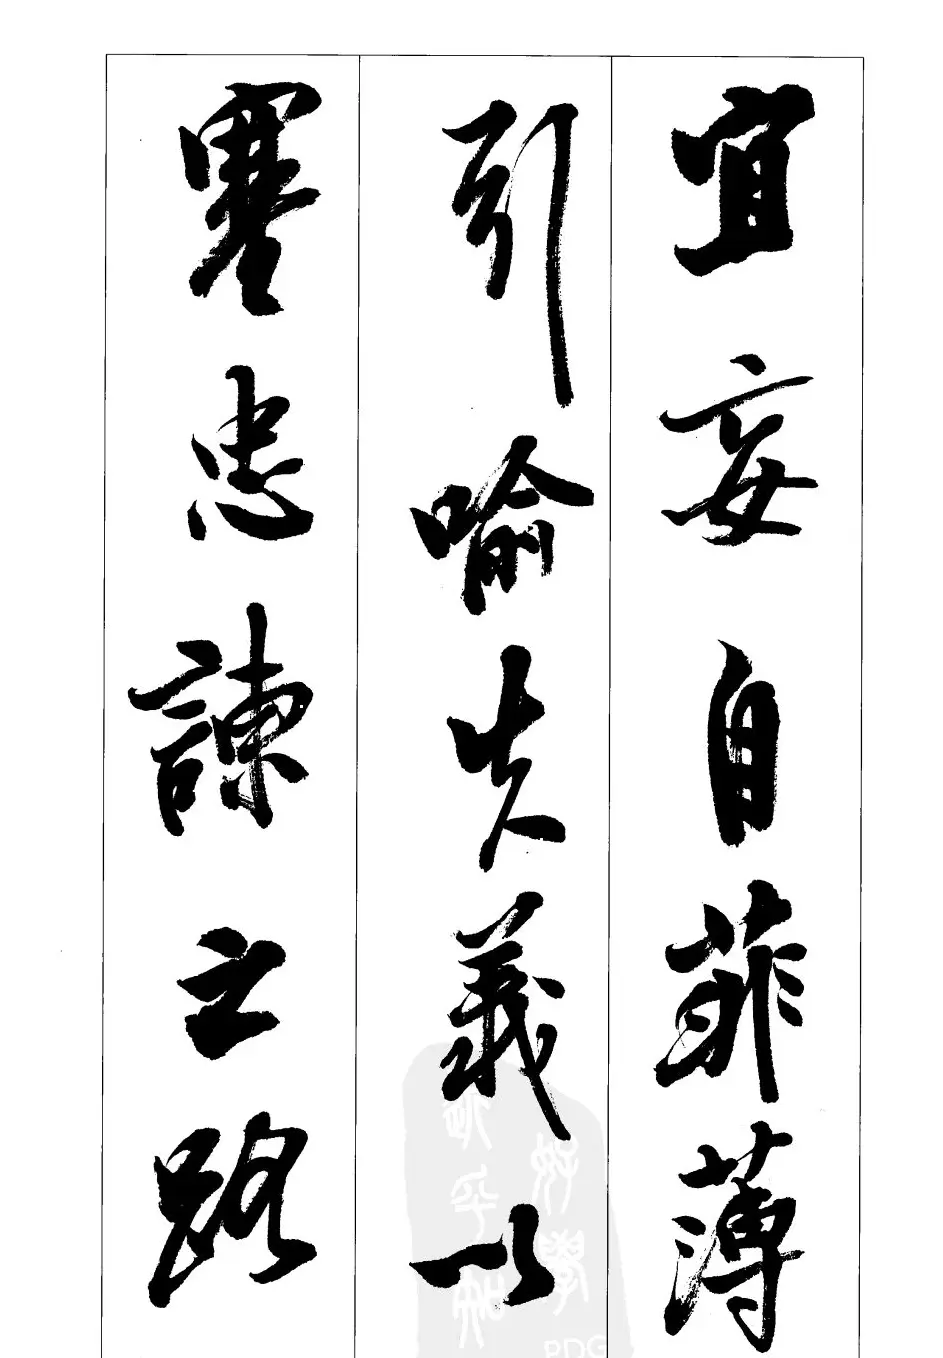 宜妄自菲薄
引喻失義以
塞忠諫之路
PDG